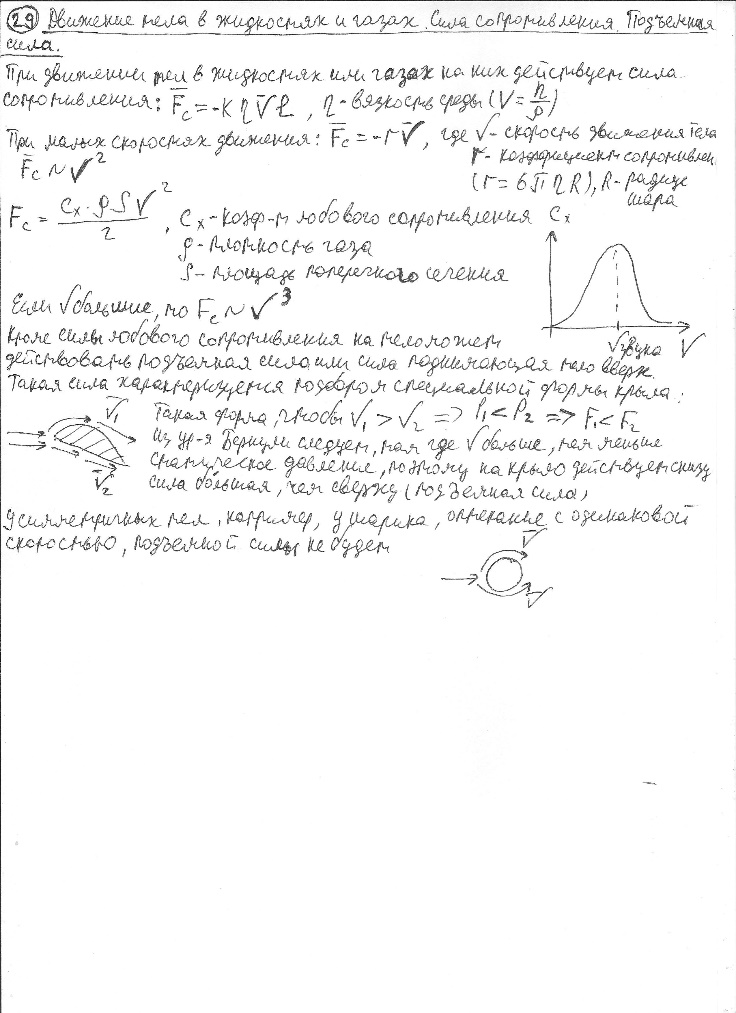 29 Движение тела в жидкостях и газах. Сила сопротивления. Подъемная
сила.
При движении тел в жидкостях или газах на них действует сила
сопротивления: F̅c = -kηV̅l , η - вязкость среды (V = η/ρ)
При малых скоростях движения: F̅c = -rV̅, где V - скорость движения тела
r - коэффициент сопротивлен
F̅c ~ V²
(r = 6πηR), R - радиус
шара
Fc = Cx·ρSV²/2 , Cx - коэф-т лобового сопротивления
ρ - плотность газа
S - площадь поперечного сечения
Cx
Vзвука V
Если V больше, то Fc ~ V³
Кроме силы лобового сопротивления на тело может
действовать подъемная сила или сила поднимающая тело вверх.
Такая сила характеризуется подбором специальной формы крыла:
V̅1
V̅2
Такая форма, чтобы V1 > V2 => P1 < P2 => F1 < F2
Из ур-я Бернули следует, там где V больше, там меньше
статическое давление, поэтому на крыло действует снизу
сила большая, чем сверху (подъемная сила)
У симметричных тел, например, у шарика, обтекание с одинаковой
скоростью, подъемной силы не будет
V̅
V̅